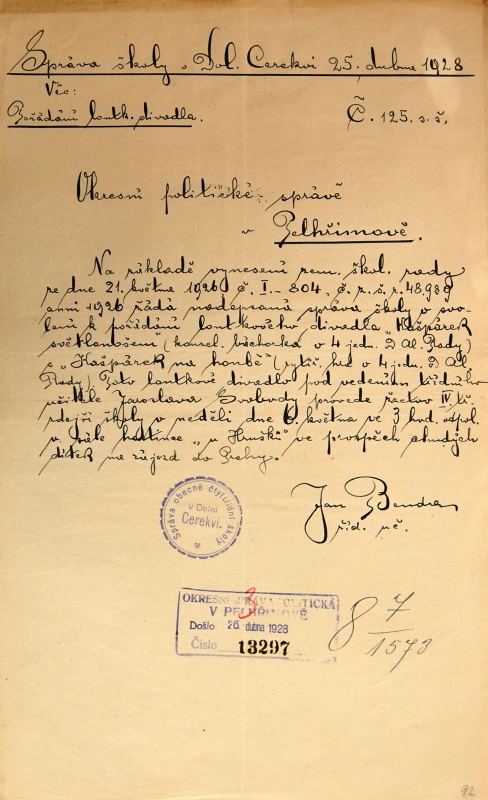 Správa školy v Dol. Cerekvi 25. dubna 1928
Věc:
Pořádání loutk. divadla.
Č. 125. s. š.
Okresní politické správě
v Pelhřimově.
Na základě vynesení zem. škol. rady
ze dne 21. května 1926 č. I.-804, č. z. š. r. 48.989
anni 1926 žádá nadepsaná správa školy o svo-
lení k pořádání loutkového divadla „Kašpárek
(kouzel. báchorka o 4 jedn. D Al. Rady)
a „Kašpárek na honbě“ (rytíř. hra o 4 jedn. D Al.
Rady). Toto loutkové divadlo pod vedením třídního
učitele Jaroslava Svobody provede žactvo IV. tř.
zdejší školy v neděli dne 6. května ve 3 hod. odpol.
v sále hostince „u Hrušků“ ve prospěch chudých
dítek na zájezd do Prahy.
Jan Bendra
říd. uč.
Správa obecné čtyřtřídní školy
v Dolní
Cerekvi.
OKRESNÍ SPRÁVA POLITICKÁ
V PELHŘIMOVĚ
Došlo 26. dubna 1928
Číslo 13297
8 7/1573
92